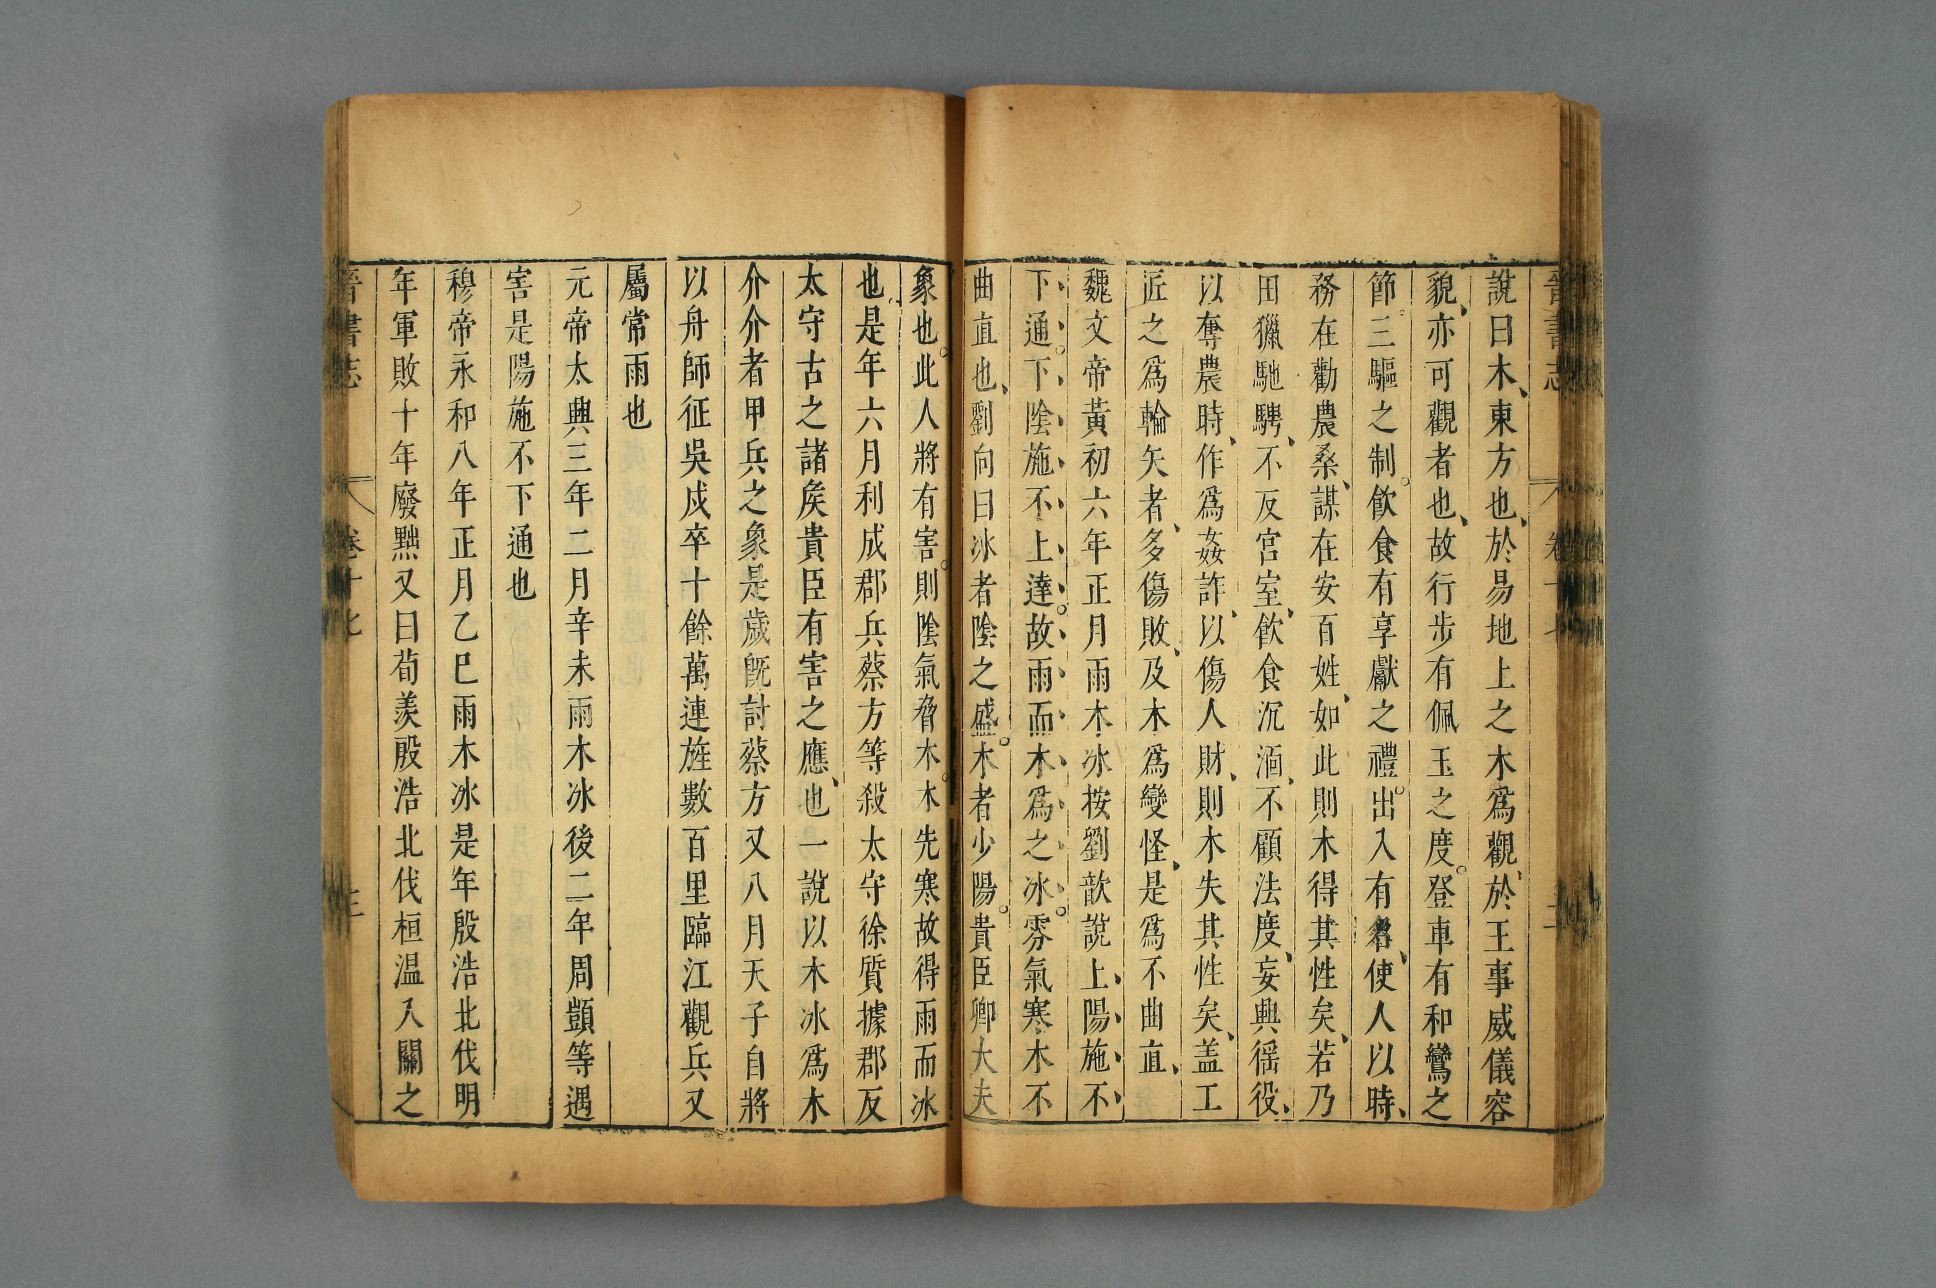 說曰木、東方也、於易地上之木爲觀、於王事威儀容
貌、亦可觀者也、故行步有佩玉之度。登車有和鸞之
節。三驅之制。飮食有享獻之禮。出入有名、使人以時、
務在勸農桑、謀在安百姓、如此則木得其性矣、若乃
田獵馳騁、不反宮室、飮食沉湎、不顧法度、妄興徭役、
以奪農時、作爲姦詐、以傷人財、則木失其性矣、葢工
匠之爲輪矢者、多傷敗、及木爲變怪、是爲不曲直、
魏文帝黃初六年正月雨木冰按劉歆說上、陽、施、不、
下、通。下、陰、施、不、上、達。故、雨、而、木、爲、之、冰。雰氣寒木不
曲直也、劉向曰冰者陰之盛。木者少陽。貴臣卿大夫
象也。此人將有害。則陰氣脅木。木先寒故得雨而冰
也、是年六月利成郡兵蔡方等殺太守徐質據郡反
太守古之諸矦貴臣有害之應、也一說以木冰爲木
介介者甲兵之象是歲旣討蔡方又八月天子自將
以舟師征吳戍卒十餘萬連旌數百里臨江觀兵又
屬常雨也
元帝太興三年二月辛未雨木冰後二年周顗等遇
害是陽施不下通也
穆帝永和八年正月乙巳雨木冰是年殷浩北伐明
年軍敗十年廢黜又曰荀羨殷浩北伐桓温入關之
晉書志 卷十七 三